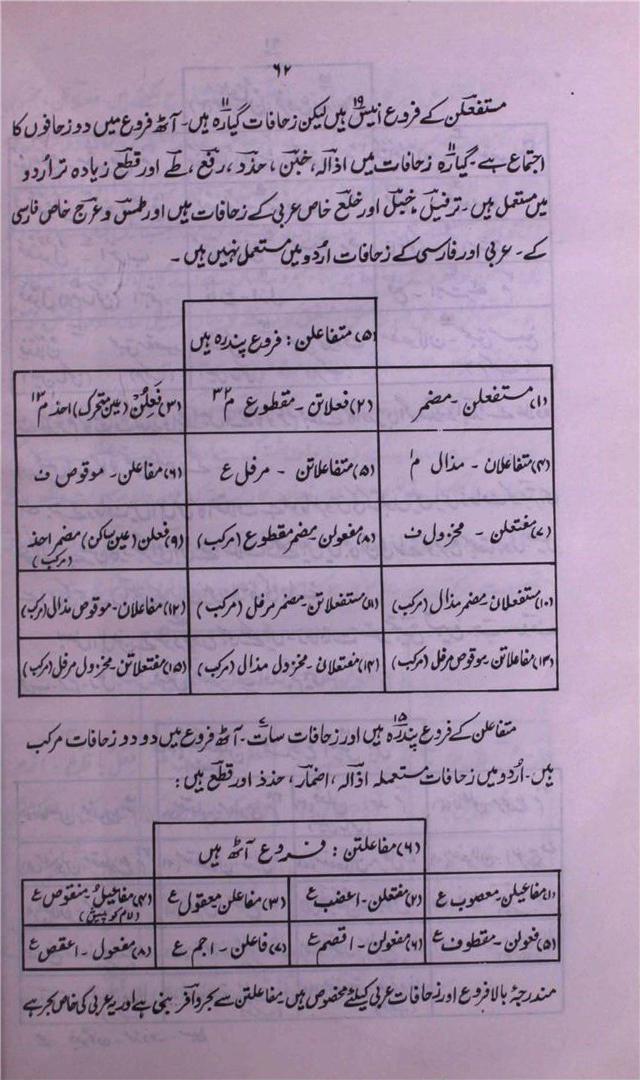 ۶۲
مستفعلن کے فروع انیس۱۹ ہیں لیکن زحافات گیارہ۱۱ ہیں۔ آٹھ فروع میں دو زحافوں کا
اجتماع ہے۔ گیارہ۱۱ زحافات میں اذالہ، خبن، حذذ، رفع، طے اور قطع زیادہ تر اُردو
میں مستعمل ہیں۔ ترفیل، خبل اور خلع خاص عربی کے زحافات ہیں اور طمس و عرج خاص فارسی
کے۔ عربی اور فارسی کے زحافات اُردو میں مستعمل نہیں ہیں۔
(۵) متفاعلن : فروع پندرہ ہیں
(۱) مستفعلن ۔ مضمر (۲) فعلاتن ۔ مقطوع م۳۲ (۳) فَعِلُن (عین متحرک) احذ م۱۲
(۴) متفاعلان ۔ مذال م۱ (۵) متفاعلاتن ۔ مرفل ع (۶) مفاعلن ۔ موقوص ف
(۷) مفتعلن ۔ مخزول ف (۸) مفعولن ۔ مضمر مقطوع (مرکب) (۹) فعلن (عین ساکن) مضمر احذ (مرکب)
(۱۰) مستفعلان ۔ مضمر مذال (مرکب) (۱۱) مستفعلاتن ۔ مضمر مرفل (مرکب) (۱۲) مفاعلان ۔ موقوص مذال (مرکب)
(۱۳) مفاعلاتن ۔ موقوص مرفل (مرکب) (۱۴) مفتعلان ۔ مخزول مذال (مرکب) (۱۵) مفتعلاتن ۔ مخزول مرفل (مرکب)
متفاعلن کے فروع پندرہ۱۵ ہیں اور زحافات سات۷۔ آٹھ فروع میں دو دو زحافات مرکب
ہیں۔ اُردو میں زحافات مستعملہ اذالہ، اضمار، حذذ اور قطع ہیں :
(۶) مفاعلتن : فروع آٹھ ہیں
(۱) مفاعیلن ۔ معصوب ع (۲) مفتعلن ۔ اعضب ع (۳) مفاعلن معقول ع (۴) مفاعیلُ ۔ منقوص ع (لام کو پیش)
(۵) فعولن ۔ مقطوف ع (۶) مفعولن ۔ اقصم ع (۷) فاعلن ۔ اجم ع (۸) مفعول ۔ اعقص ع
مندرجۂ بالا فروع اور زحافات عربی کیلئے مخصوص ہیں۔ مفاعلتن سے بحر وافر بنتی ہے اور یہ عربی کی خاص بحر ہے